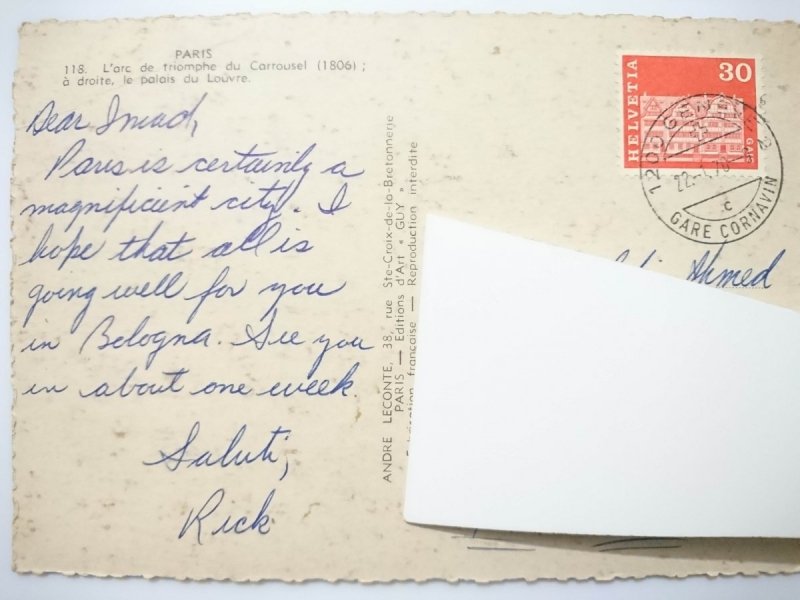 PARIS
118. L'arc de triomphe du Carrousel (1806) ;
à droite, le palais du Louvre.
Dear Imad,
Paris is certainly a
magnificient city. I
hope that all is
going well for you
in Bologna. See you
in about one week.
Saluti,
Rick
ANDRE LECONTE, 38, rue Ste-Croix-de-la-Bretonnerie
PARIS — Editions d'Art « GUY »
Fabrication française — Reproduction interdite
HELVETIA
30
GAIS
1200 GENÈVE 2
22.
GARE CORNAVIN
C
Ahmed